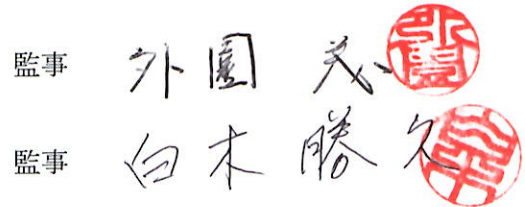 監事 外園
監事 白木勝久